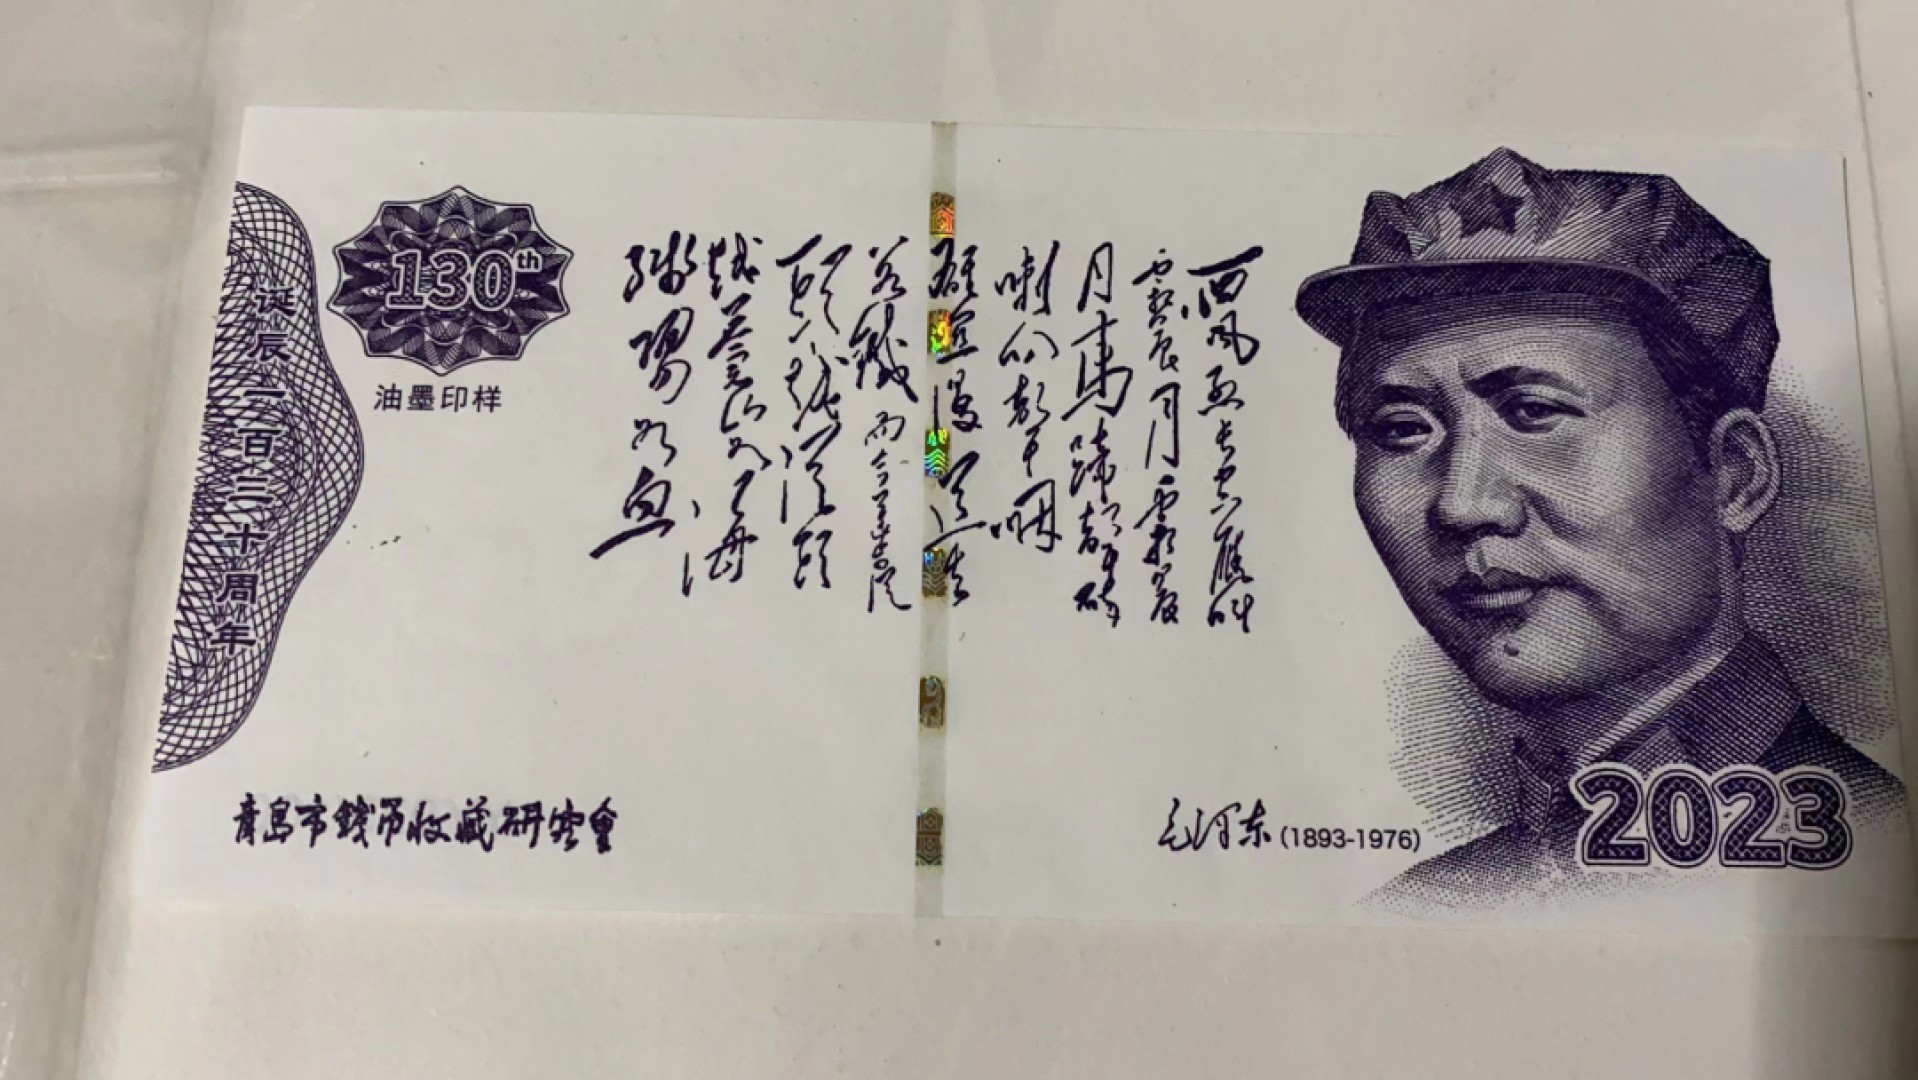 诞辰一百三十周年
130th
油墨印样
西风烈长空雁叫
霜晨月霜晨
月马蹄聲碎
喇叭聲咽
雄关漫道真
如鐵而今迈步從
頭越從頭
越苍山如海
残陽如血
青岛市錢币收藏研究會
毛泽东 (1893-1976)
2023